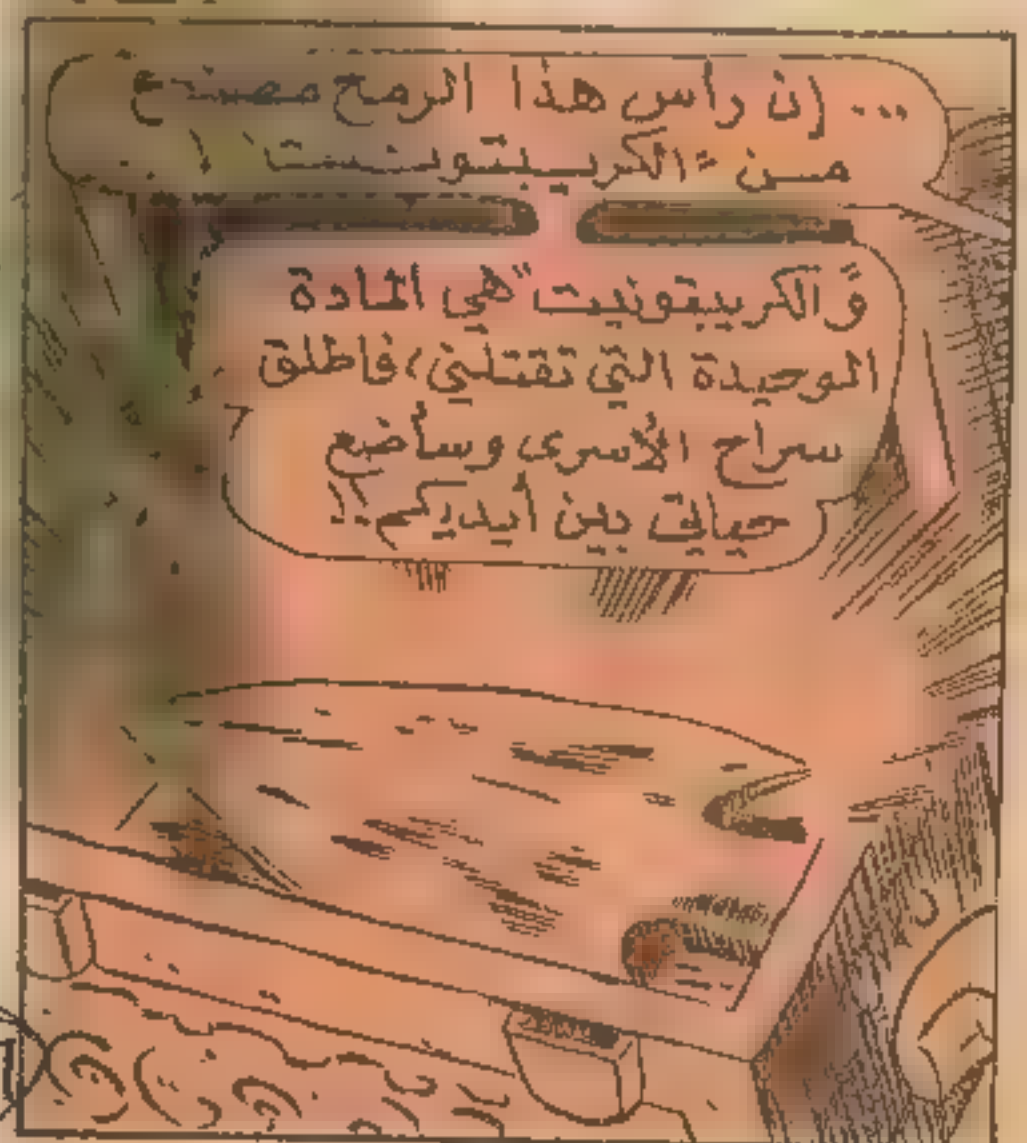 ... إن رأس هذا الرمح مصنوع
مـن "الكريـبـتونـيت" !
و"الكريبتونيت" هي المادة
الوحيدة التي تقتلني، فاطلق
سراح الأسرى وسأضع
حياتي بين أيديكم !!